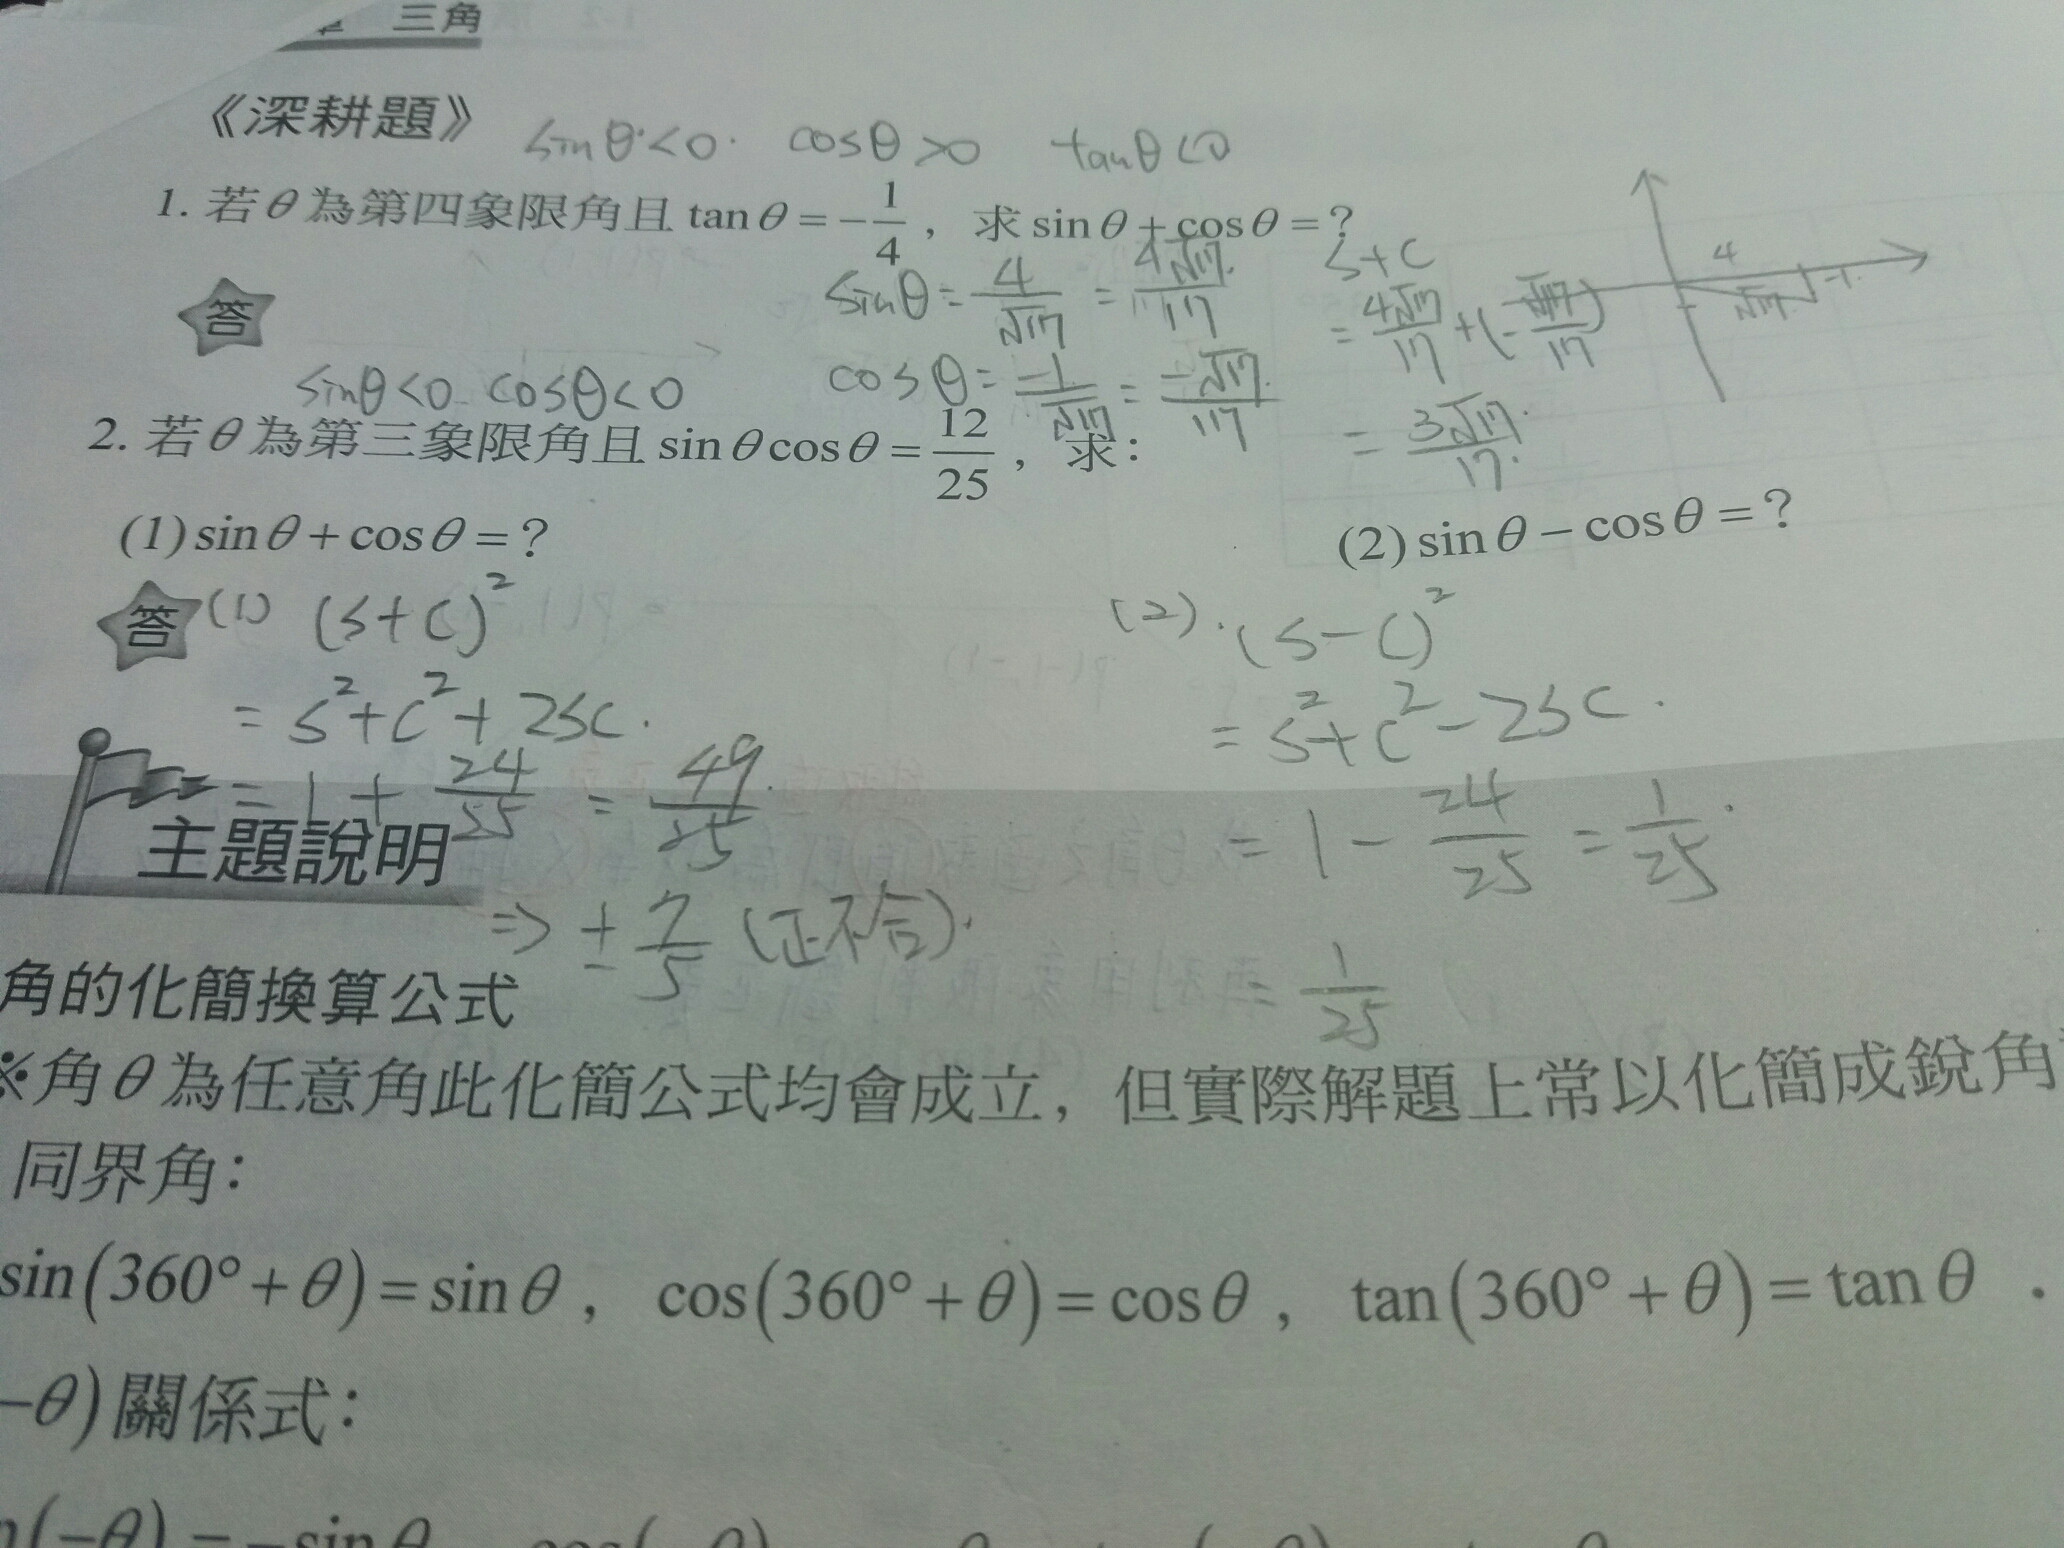 三角
《深耕題》
sinθ<0. cosθ>0 tanθ<0
1. 若θ為第四象限角且 tanθ = -1/4 ， 求 sinθ + cosθ = ?
答
sinθ = 4/√17 = 4√17/17
cosθ = -1/√17 = -√17/17
S+C
= 4√17/17 + (-√17/17)
= 3√17/17.
4
√17
-1
sinθ<0 cosθ<0
2. 若θ為第三象限角且 sinθcosθ = 12/25 ， 求：
(1) sinθ + cosθ = ?
(2) sinθ − cosθ = ?
答 (1) (S+C)²
= S²+C²+2SC.
= 1 + 24/25 = 49/25
⇒ ± 7/5 (正不合).
(2). (S-C)²
= S²+C²-2SC.
= 1 - 24/25 = 1/25.
= 1/25
主題說明
角的化簡換算公式
※角θ為任意角此化簡公式均會成立，但實際解題上常以化簡成銳角
同界角：
sin(360°+θ) = sinθ ， cos(360°+θ) = cosθ ， tan(360°+θ) = tanθ .
−θ)關係式：
(−θ) = −sinθ